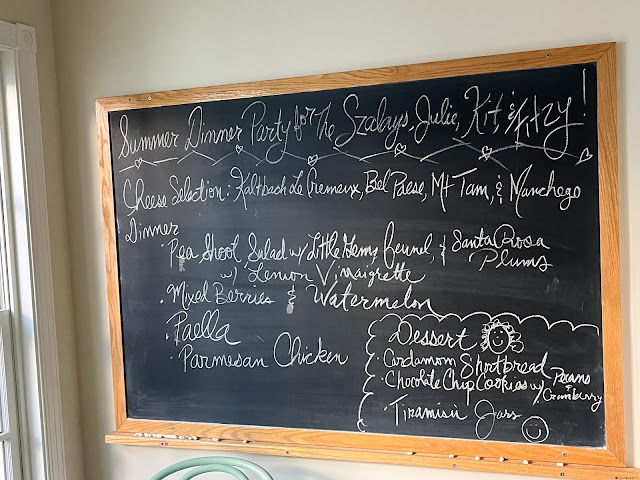 Summer Dinner Party for The Szalays, Julie, Kit, & Fitzy!
Cheese Selection: Kaltbach Le Cremeux, Bel Paese, Mt Tam, & Manchego
Dinner
· Pea Shoot Salad w/ Little Gems, Fennel, & Santa Rosa Plums
w/ Lemon Vinaigrette
· Mixed Berries & Watermelon
· Paella
· Parmesan Chicken
Dessert
· Cardamom Shortbread
· Chocolate Chip Cookies w/ Pecans & Cranberry
· Tiramisù Jars